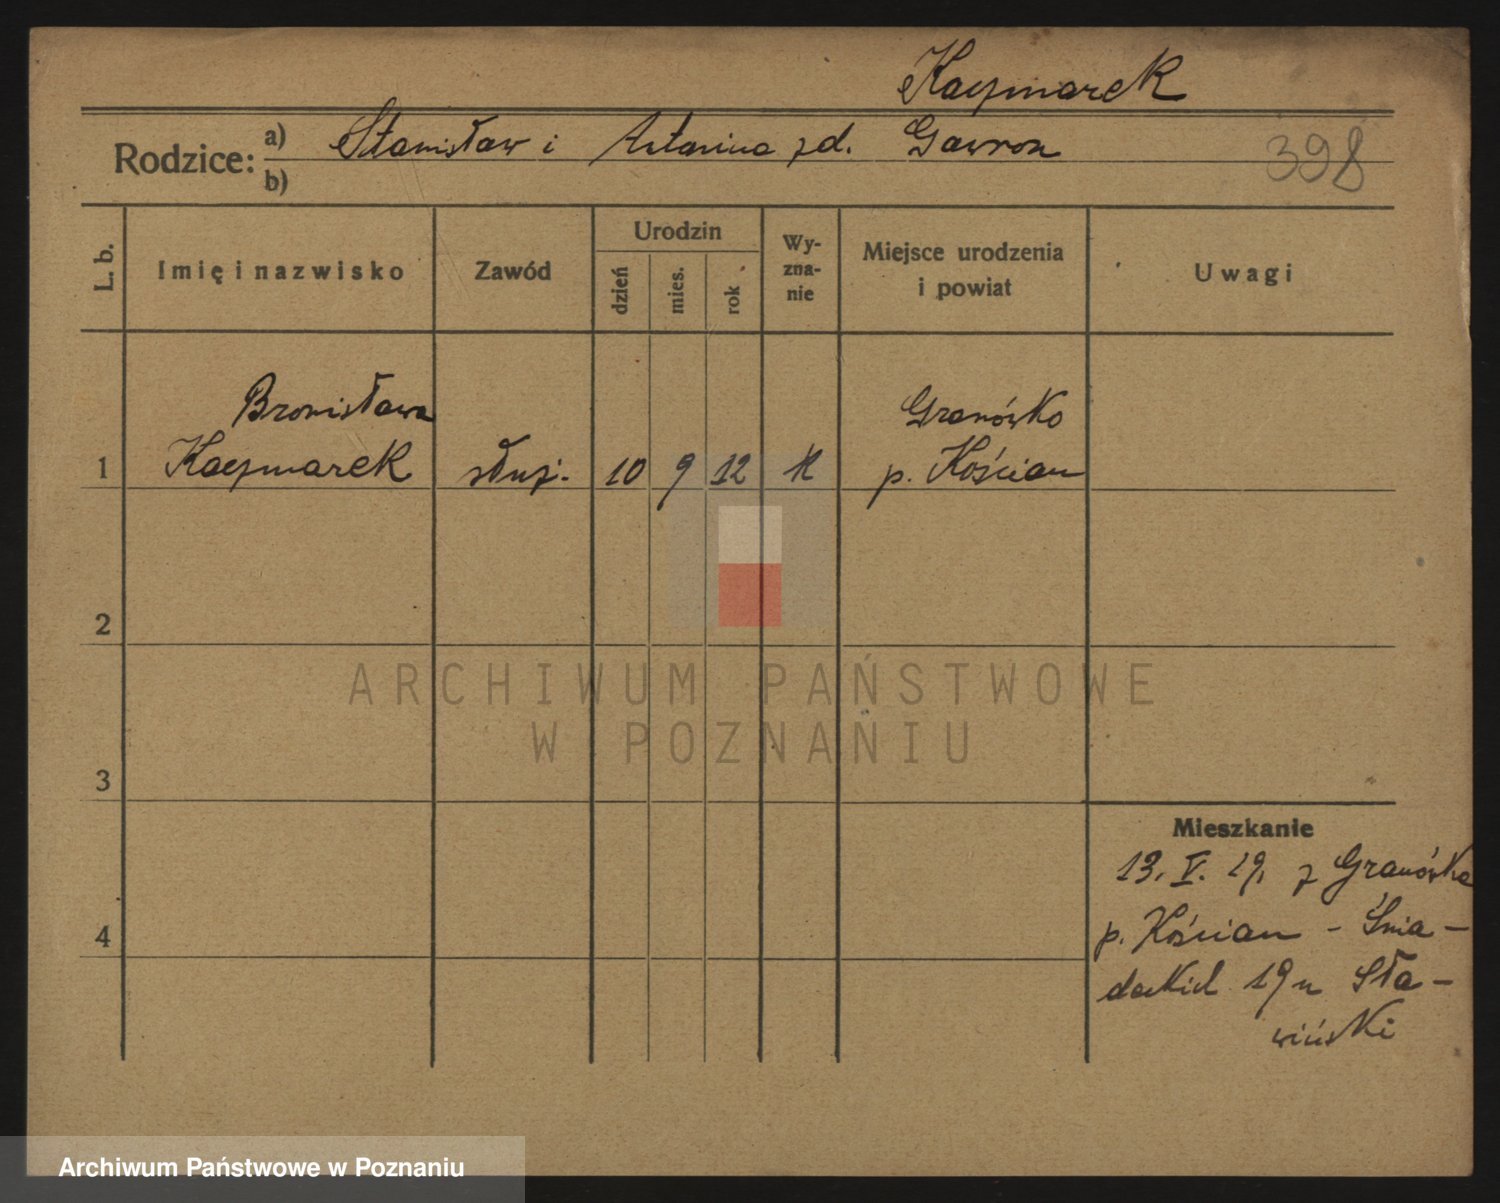 Kaczmarek
Rodzice: a) Stanisław i Antonina z d. Gawron
b)
398
L. b.
Imię i nazwisko
Zawód
Urodzin
dzień
mies.
rok
Wy-
zna-
nie
Miejsce urodzenia
i powiat
Uwagi
Bronisława
Kaczmarek
1
służ.
10 9 12
K
Granówko
p. Kościan
2
3
4
ARCHIWUM PAŃSTWOWE
W POZNANIU
Mieszkanie
13. V. 29. z Granówka
p. Kościan - Śnia-
deckich 19 u Sła-
wiński
Archiwum Państwowe w Poznaniu